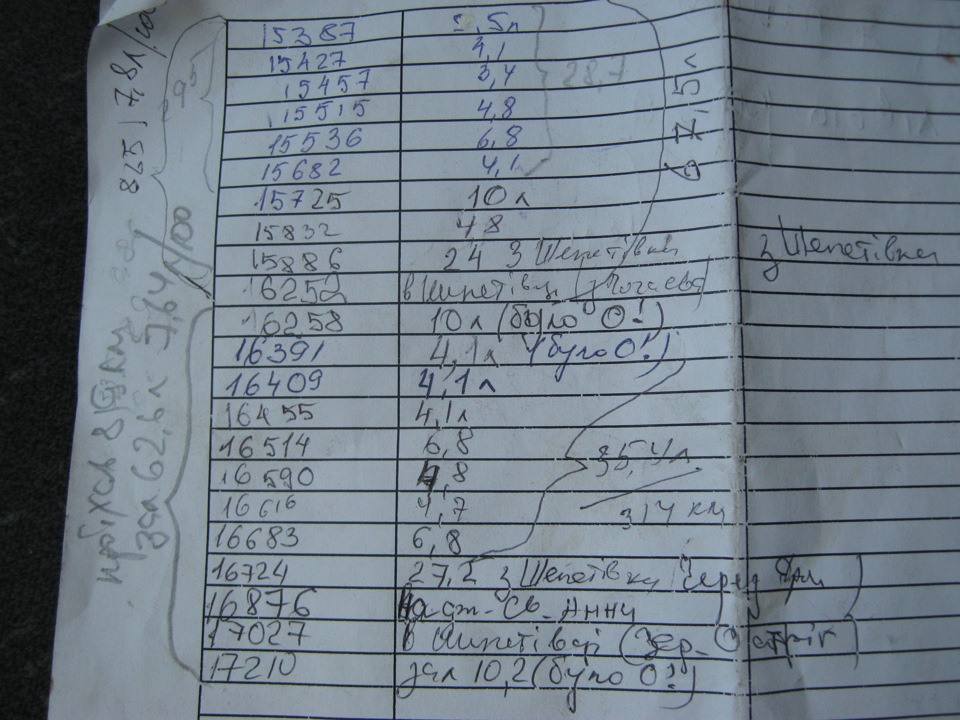 15387 2,5л
15427 4,1
15457 3,4
15515 4,8
15536 6,8
15682 4,1
28,7
67,5л
15725 10л
15832 4,8
15886 24 з Шепетівки
з Шепетівки
16252 в Шепетівці (з Почаєва)
16258 10л (було О!)
16391 4,1л (було О!)
16409 4,1л
16455 4,1л
16514 6,8
16590 4,8
16616 4,7
16683 6,8
314 км
16724 27,2 з Шепетівки
16876 Св. Анни
17027 в Шепетівці
17210 зал 10,2 (було О!)
825 17,8л/100
за 62,6л 7,64 л/100